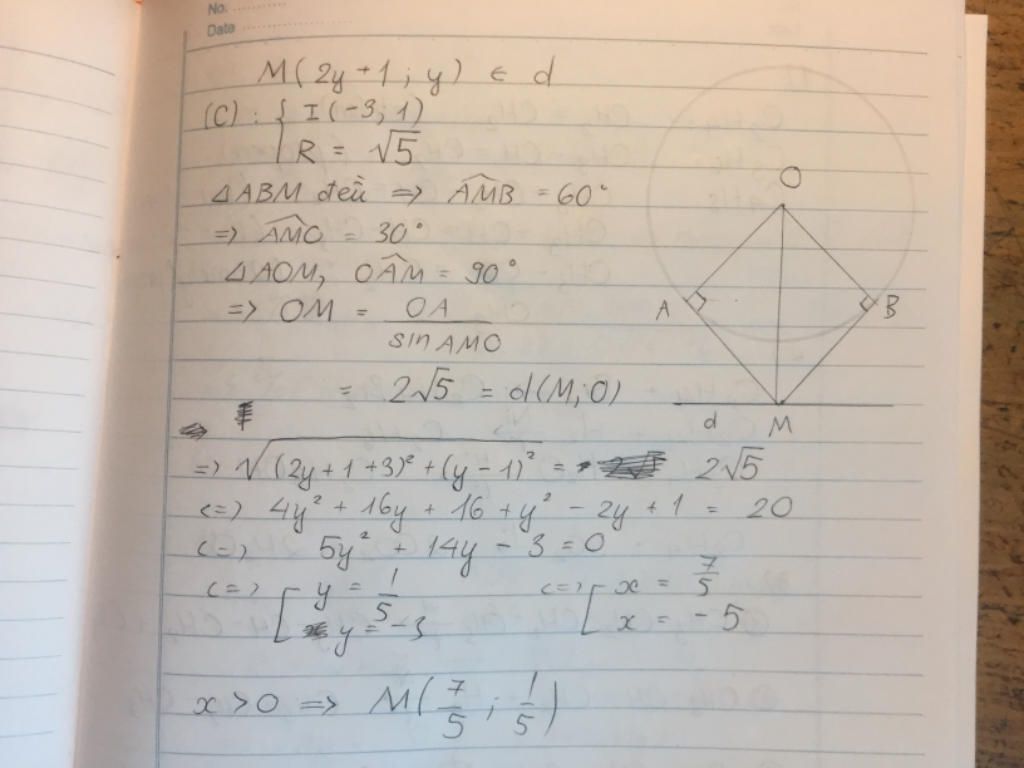 No. ............
Date ........................
M( 2y + 1 ; y ) ∈ d
(C) : { I (-3; 1)
R = √5
△ABM đều => ∠AMB = 60°
=> ∠AMO = 30°
△AOM, ∠OAM = 90°
=> OM = OA / sin AMO
= 2√5 = d(M; O)
=> √((2y + 1 + 3)² + (y - 1)²) = 2√5
<=> 4y² + 16y + 16 + y² - 2y + 1 = 20
<=> 5y² + 14y - 3 = 0
<=> [ y = 1/5 <=> [ x = 7/5
y = -3 x = -5
x > 0 => M( 7/5 ; 1/5 )
O
A
B
d
M